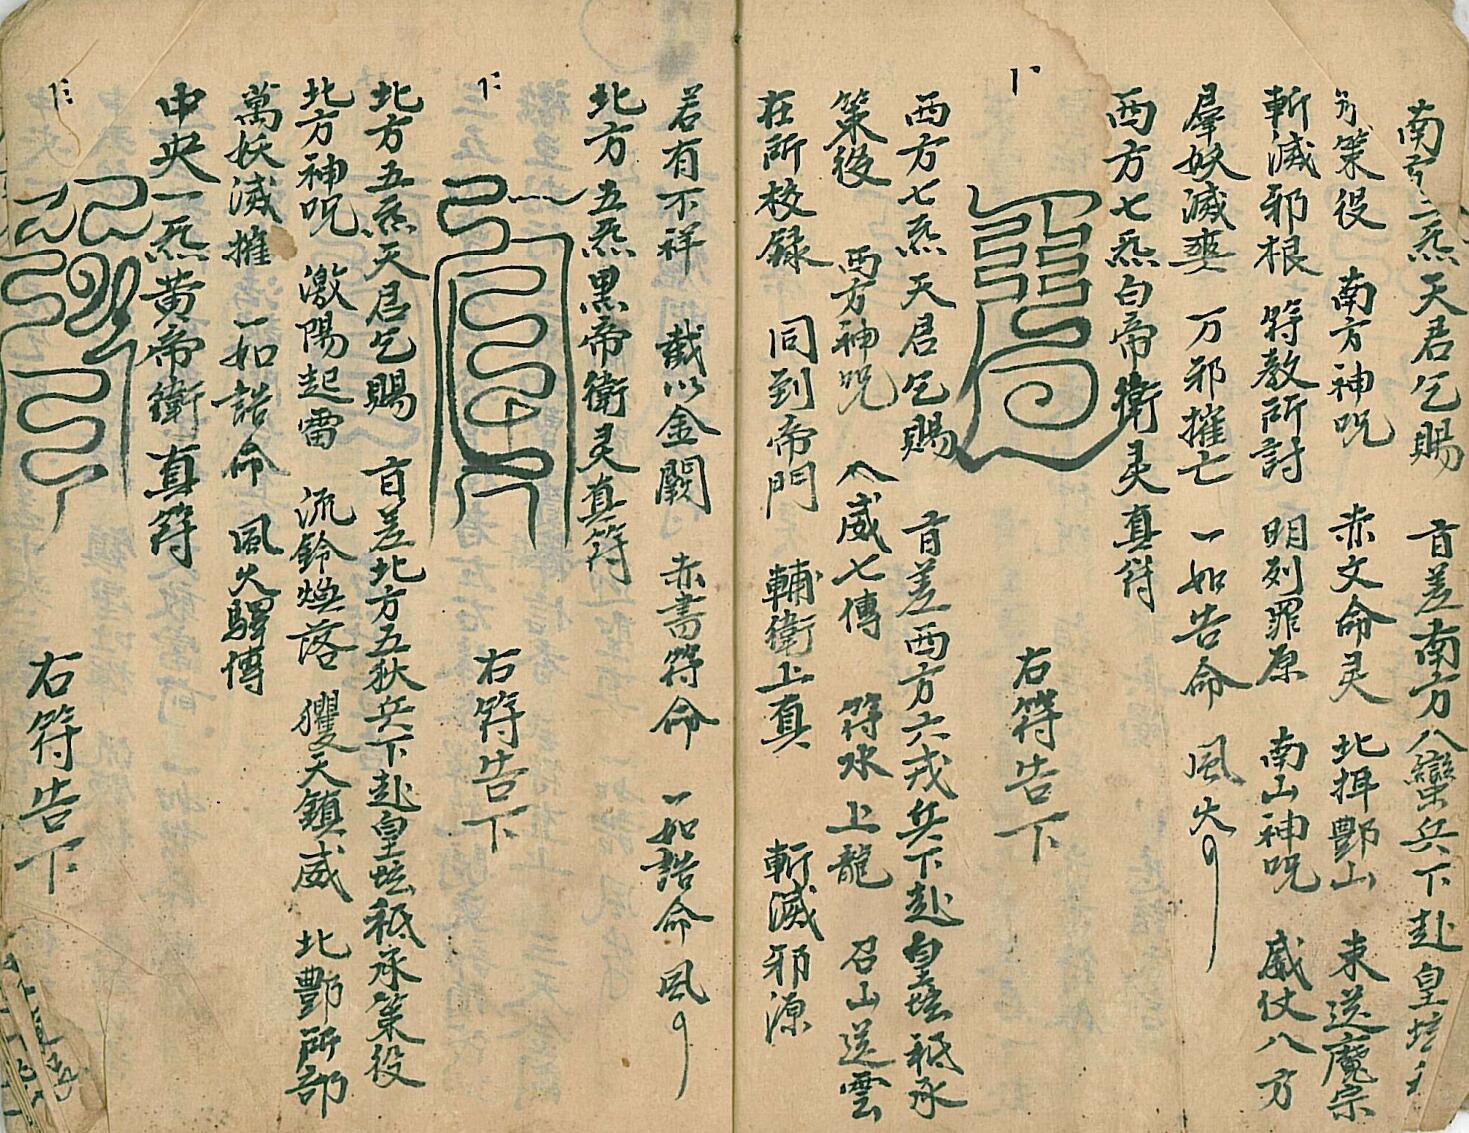 南方三炁天君乞賜 𫞩差南方八蠻兵下赴皇坛
策役 南方神咒 赤文命灵 北揖酆山 束送魔宗
斬滅邪根 符教所討 明列罪原 南山神咒 威仗八方
羣妖滅爽 万邪摧亡 一如告命 風火
西方七炁白帝衛灵真符
右符告下
西方七炁天君乞賜 差西方六戎兵下赴皇坛祗承
策役 西方神咒 八威七傳 符水上龍 召山送雲
在所校録 同到帝門 輔衛上真 斬滅邪源
若有不祥 截以金闕 赤書符命 一如誥命 風
北方五炁黑帝衛灵真符
右符告下
北方五炁天君乞賜 差北方五狄兵下赴皇坛祗承策役
北方神咒 激陽起雷 流鈴煥落 玃天鎮威 北酆所部
萬妖滅摧 一如誥命 風火驛傳
中央一炁黃帝衛真符
右符告下